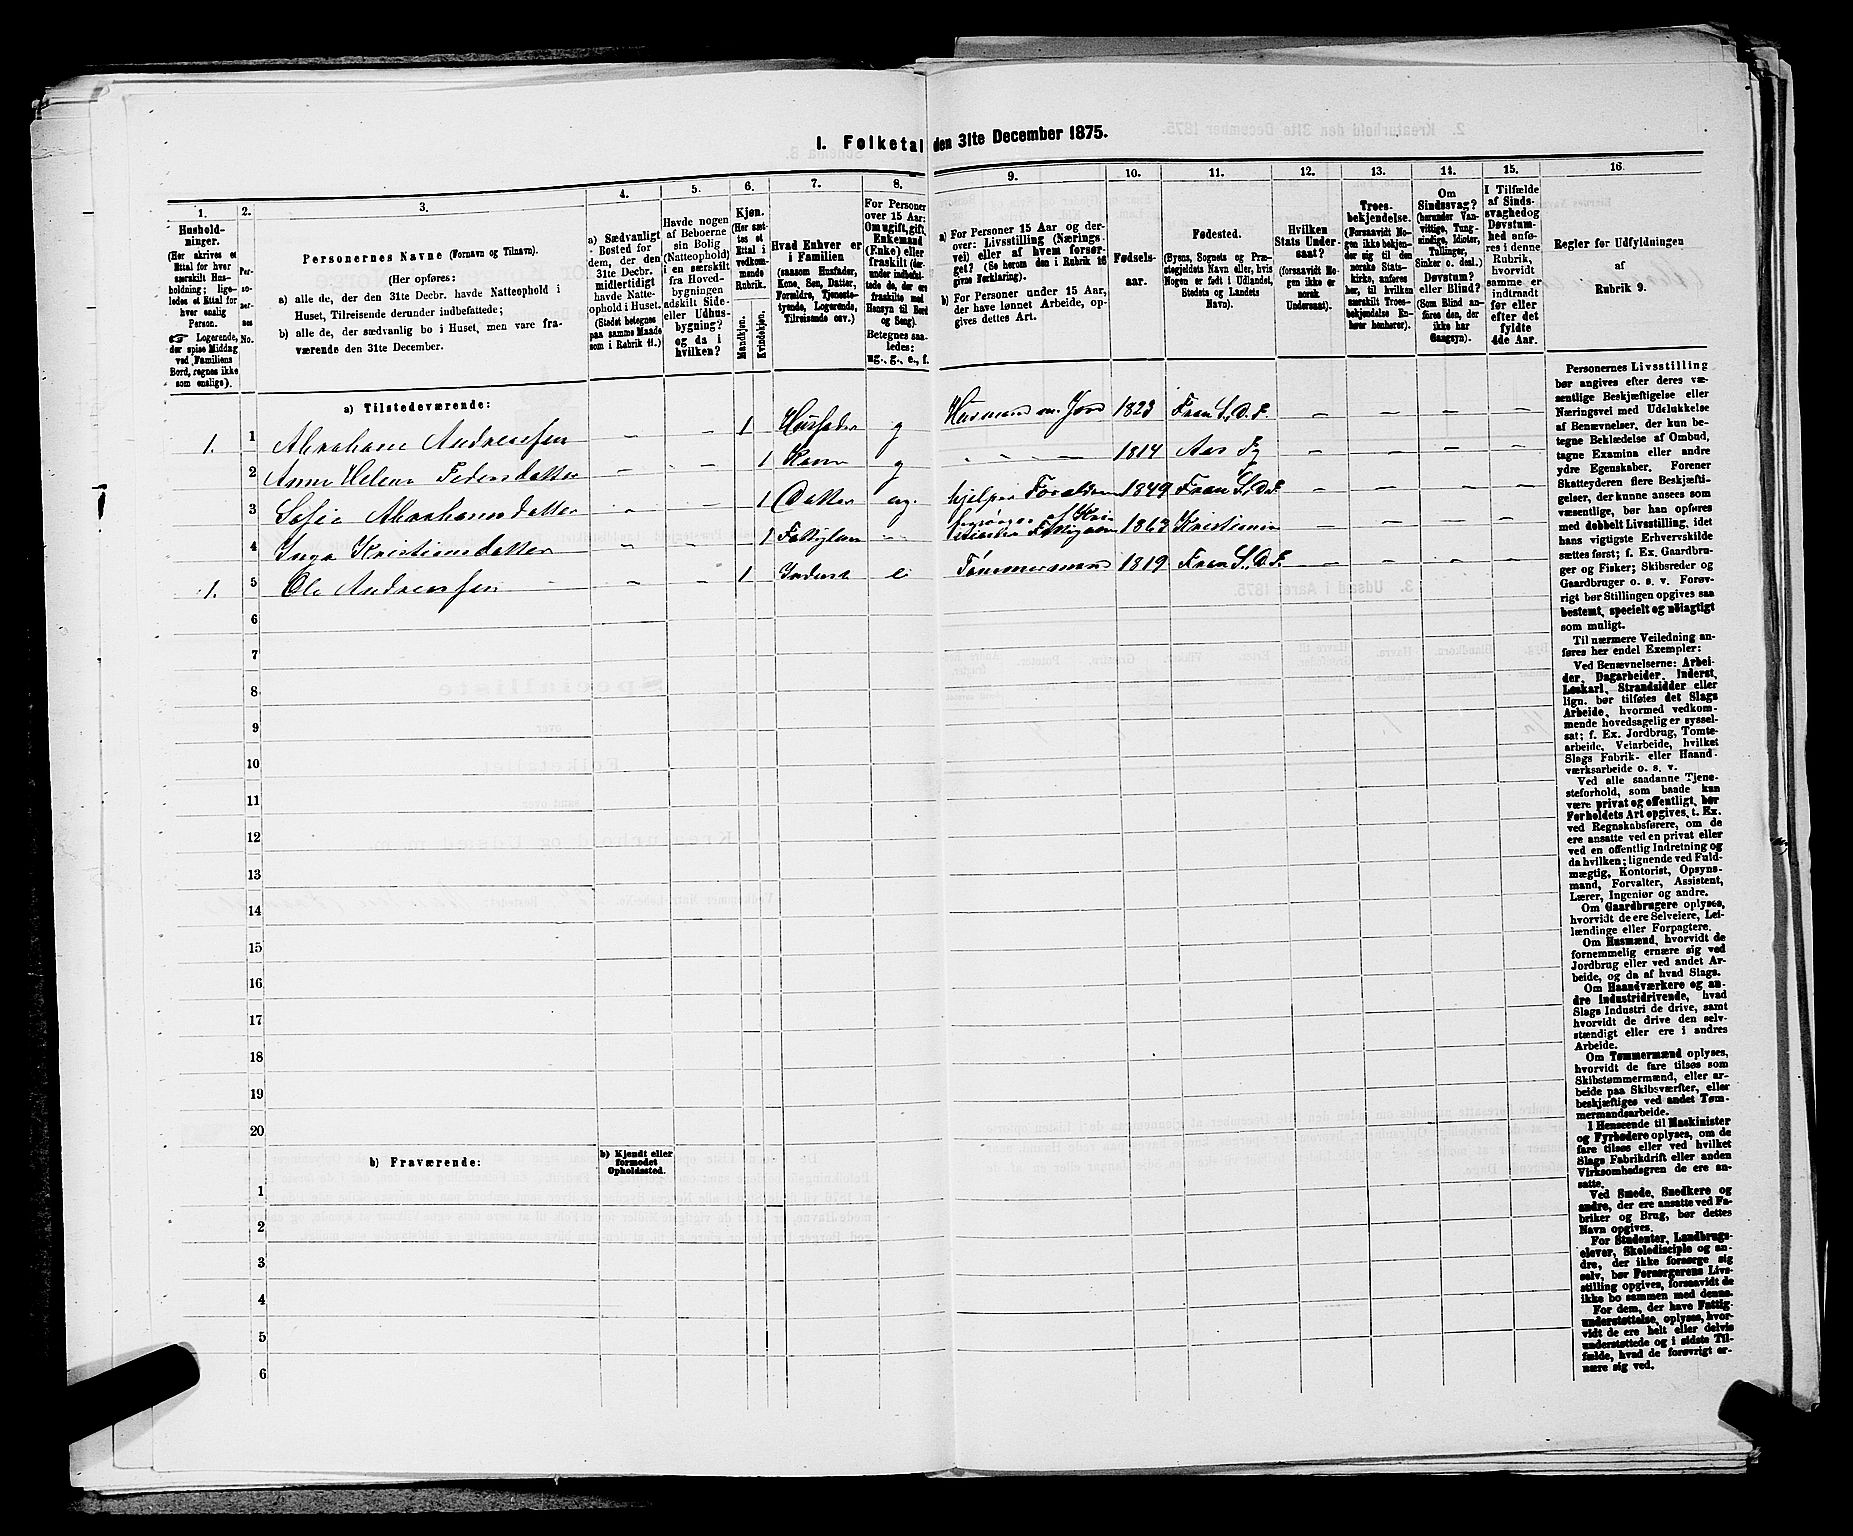 I. Folketal den 31te December 1875.
1. 2. 3. 4. 5. 6. 7. 8. 9. 10. 11. 12. 13. 14. 15. 16.
Hushold-
ninger.
(Her skrives et
Ettal for hver
særskilt Hus-
holdning; lige-
ledes et Ettal for
hver enslig
Person.
☞ Logerende,
der spise Middag
ved Familiens
Bord, regnes ikke
som enslige).
Per-
so-
ner-
nes
No.
Personernes Navne (Fornavn og Tilnavn).
(Her opføres:
a) alle de, der den 31te Decbr. havde Natteophold i
Huset, Tilreisende derunder indbefattede;
b) alle de, der sædvanlig bo i Huset, men vare fra-
værende den 31te December.
a) Sædvanligt
Bosted for
dem, der den
31te Decbr.
midlertidigt
havde Natte-
ophold i Huset.
(Stedet betegnes
paa samme Maade
som i Rubrik 11.)
Havde nogen
af Beboerne
sin Bolig
(Natteophold)
i en særskilt
fra Hoved-
bygningen
adskilt Side-
eller Udhus-
bygning?
og da i
hvilken?
Kjøn.
(Her sæt-
tes et
Ettal i
vedkom-
mende
Rubrik.
Mandkjøn.
Kvindekjøn.
Hvad Enhver er
i Familien
(saasom Husfader,
Kone, Søn, Datter,
Forældre, Tjeneste-
tyende, Logerende,
Tilreisende osv.)
For Personer
over 15 Aar:
Om ugift, gift,
Enkemand
(Enke) eller
fraskilt (der-
under indbefat-
tede de, der ere
fraskilte med
Hensyn til Bord
og Seng).
Betegnes saa-
ledes:
ug., g., e., f.
a) For Personer 15 Aar og der-
over: Livsstilling (Nærings-
vei) eller af hvem forsør-
get? (Se herom den i Rubrik 16
givne Forklaring).
b) For Personer under 15 Aar,
der have lønnet Arbeide, op-
gives dettes Art.
Fødsels-
aar.
Fødested.
(Byens, Sognets og Præ-
stegjeldets Navn eller, hvis
Nogen er født i Udlandet,
Stedets og Landets
Navn).
Hvilken
Stats Under-
saat?
(forsaavidt No-
gen ikke er
norsk
Undersaat).
Troes-
bekjendelse.
(Forsaavidt No-
gen ikke bekjen-
der sig til den
norske Stats-
kirke, anføres
her, til hvilken
særskilt Troes-
bekjendelse En-
hver henhører).
Om
Sindssvag?
(herunder Van-
vittige, Tung-
sindige, Idioter,
Tullinger,
Sinker o. desl.)
Døvstum?
eller Blind?
(Som Blind an-
føres den, der
ikke har
Gangsyn).
I Tilfælde
af Sinds-
svaghed og
Døvstum-
hed anfø-
res i denne
Rubrik,
hvorvidt
samme er
indtraadt
før eller
efter det
fyldte
4de Aar.
Regler for Udfyldningen
af
Rubrik 9.
a) Tilstedeværende:
1. 1 Abraham Andreassen – – 1 Husfader g Husmand m. Jord 1823 Fron S. D. F. – – – –
2 Anne Helene Pedersdatter – – 1 Kone g – – – – 1814 Aas Pg – – – –
3 Sofie Abrahamsdatter – – 1 Datter ug. hjelper Forældrene 1849 Fron S. D. F. – – – –
4 Inga Kristiansdatter – – 1 Fattiglem – forsørges af Kri-
stiania Fattigvæsen 1863 Kristiania – – – –
1. 5 Ole Andreassen – – 1 Inderst e Tømmermand 1819 Fron S. D. F. – – – –
6
7
8
9
10
11
12
13
14
15
16
17
18
19
20
b) Fraværende:
b) Kjendt eller
formodet
Opholdssted.
1
2
3
4
5
6
Personernes Livsstilling
bør angives efter deres væ-
sentlige Beskjæftigelse eller
Næringsvei med Udelukkelse
af Benævnelser, der kun be-
tegne Beklædelse af Ombud,
tagne Examina eller andre
ydre Egenskaber. Forener
Skatteyderen flere Beskjæfti-
gelser, der kunne ansees som
væsentlige, bør han opføres
med dobbelt Livsstilling, idet
hans vigtigste Erhvervskilde
sættes først; f. Ex. Gaardbru-
ger og Fisker; Skibsreder og
Gaardbruger o. s. v. Forøv-
rigt bør Stillingen opgives saa
bestemt, specielt og nøiagtigt
som muligt.
Til nærmere Veiledning an-
føres her endel Exempler:
Ved Benævnelserne: Arbei-
der, Dagarbeider, Inderst,
Løskarl, Strandsidder eller
lign. bør tilføies det Slags
Arbeide, hvormed vedkom-
mende hovedsagelig er syssel-
sat; f. Ex. Jordbrug, Tomte-
arbeide, Veiarbeide, hvilket
Slags Fabrik- eller Haand-
værksarbeide o. s. v.
Ved alle saadanne Tjene-
steforhold, som baade kan
være privat og offentligt, bør
Forholdets Art opgives, t. Ex.
ved Regnskabsførere, om de
ere ansatte ved en privat eller
ved en offentlig Indretning og
da hvilken; lignende ved Fuld-
mægtig, Kontorist, Opsyns-
mand, Forvalter, Assistent,
Lærer, Ingeniør og andre.
Om Gaardbrugere oplyses,
hvorvidt de ere Selveiere, Lei-
lændinge eller Forpagtere.
Om Husmænd, hvorvidt de
fornemmelig ernære sig ved
Jordbrug eller ved andet Ar-
beide, og da af hvad Slags.
Om Haandværkere og an-
dre Industridrivende, hvad
Slags Industri de drive, samt
hvorvidt de drive den selv-
stændigt eller ere i andres
Arbeide.
Om Tømmermænd oplyses,
hvorvidt de fare tilsøs som
Skibstømmermænd, eller ar-
beide paa Skibsværfter, eller
beskjæftiges ved andet Tøm-
mermandsarbeide.
I Henseende til Maskinister
og Fyrbødere oplyses, om de
fare tilsøs eller ved hvilket
Slags Fabrikdrift eller anden
Virksomhedsgren de ere an-
satte.
Ved Smede, Snedkere og
andre, der ere ansatte ved Fa-
briker og Brug, bør dettes
Navn opgives.
For Studenter, Landbrugs-
elever, Skoledisciple og an-
dre, der ikke forsørge sig
selv, bør Forsørgerens Livs-
stilling opgives, forsaavidt de
ikke bo sammen med denne.
For dem, der have Fattig-
understøttelse, oplyses, hvor-
vidt de ere helt eller delvis
understøttede og i sidste Til-
fælde, hvad de forøvrigt er-
nære sig ved.